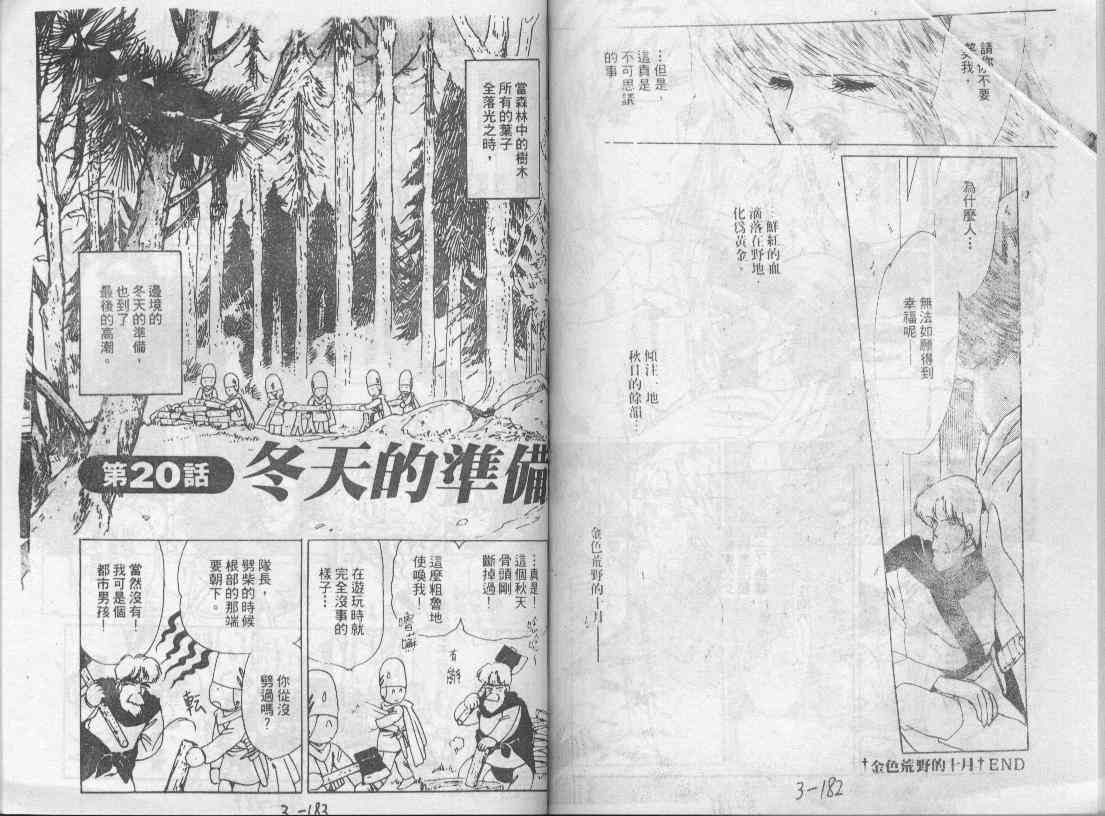 請你不要
笑我，
…但是，
這真是
不可思議
的事
為什麼人…
無法如願得到
幸福呢——
…鮮紅的血
滴落在野地，
化為黃金，
傾注一地
秋日的餘韻…
金色荒野的十月——
†金色荒野的十月†END
3-182
當森林中的樹木
所有的葉子
全落光之時，
邊境的
冬天的準備，
也到了
最後的高潮。
第20話
冬天的準備
…真是！
這個秋天
骨頭剛
斷掉過！
這麼粗魯地
使喚我！
在遊玩時就
完全沒事的
樣子…
隊長，
劈柴的時候
根部的那端
要朝下。
你從沒
劈過嗎？
當然沒有！
我可是個
都市男孩！
3-183